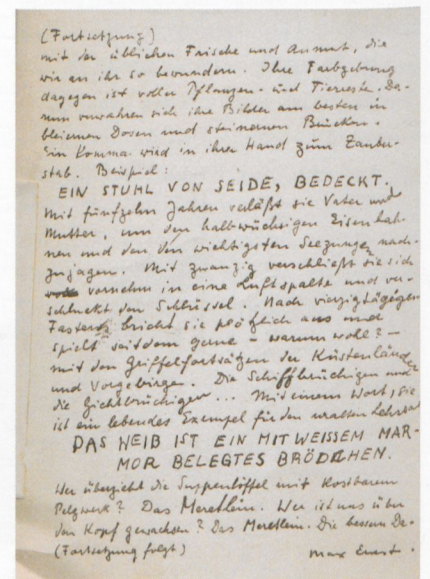 (Fortsetzung)
mit der üblichen Frische und Anmut, die
wir an ihr so bewundern. Ihre Farbgebung
dagegen ist voller Pflanzen- und Tierreste. Da-
rum verwahren sich ihre Bilder am besten in
bleiernen Dosen und steinernen Brücken.
Ein Komma wird in ihrer Hand zum Zauber-
stab. Beispiel:
EIN STUHL VON SEIDE, BEDECKT.
Mit fünfzehn Jahren verläßt sie Vater und
Mutter, um den halbwüchsigen Eisenbah-
nen und den wichtigsten Seezungen nach-
zujagen. Mit zwanzig verschließt sie sich
vornehm in eine Luftspalte und ver-
schluckt den Schlüssel. Nach vierzigtägigem
Fasten bricht sie plötzlich aus und
spielt seitdem gerne – warum wohl? –
mit den Griffelfortsätzen der Küstenländer
und Vorgebirge. Die Schiffbrüchigen und
die Gichtbrüchigen ... Mit einem Wort, sie
ist ein lebendes Exempel für den uralten Lehrsatz
DAS WEIB IST EIN MIT WEISSEM MAR-
MOR BELEGTES BRÖDCHEN.
Wer überzieht die Suppenlöffel mit kostbarem
Pelzwerk? Das Meretlein. Wer ist uns über
den Kopf gewachsen? Das Meretlein. Die bessern De-
(Fortsetzung folgt)
max Ernst.